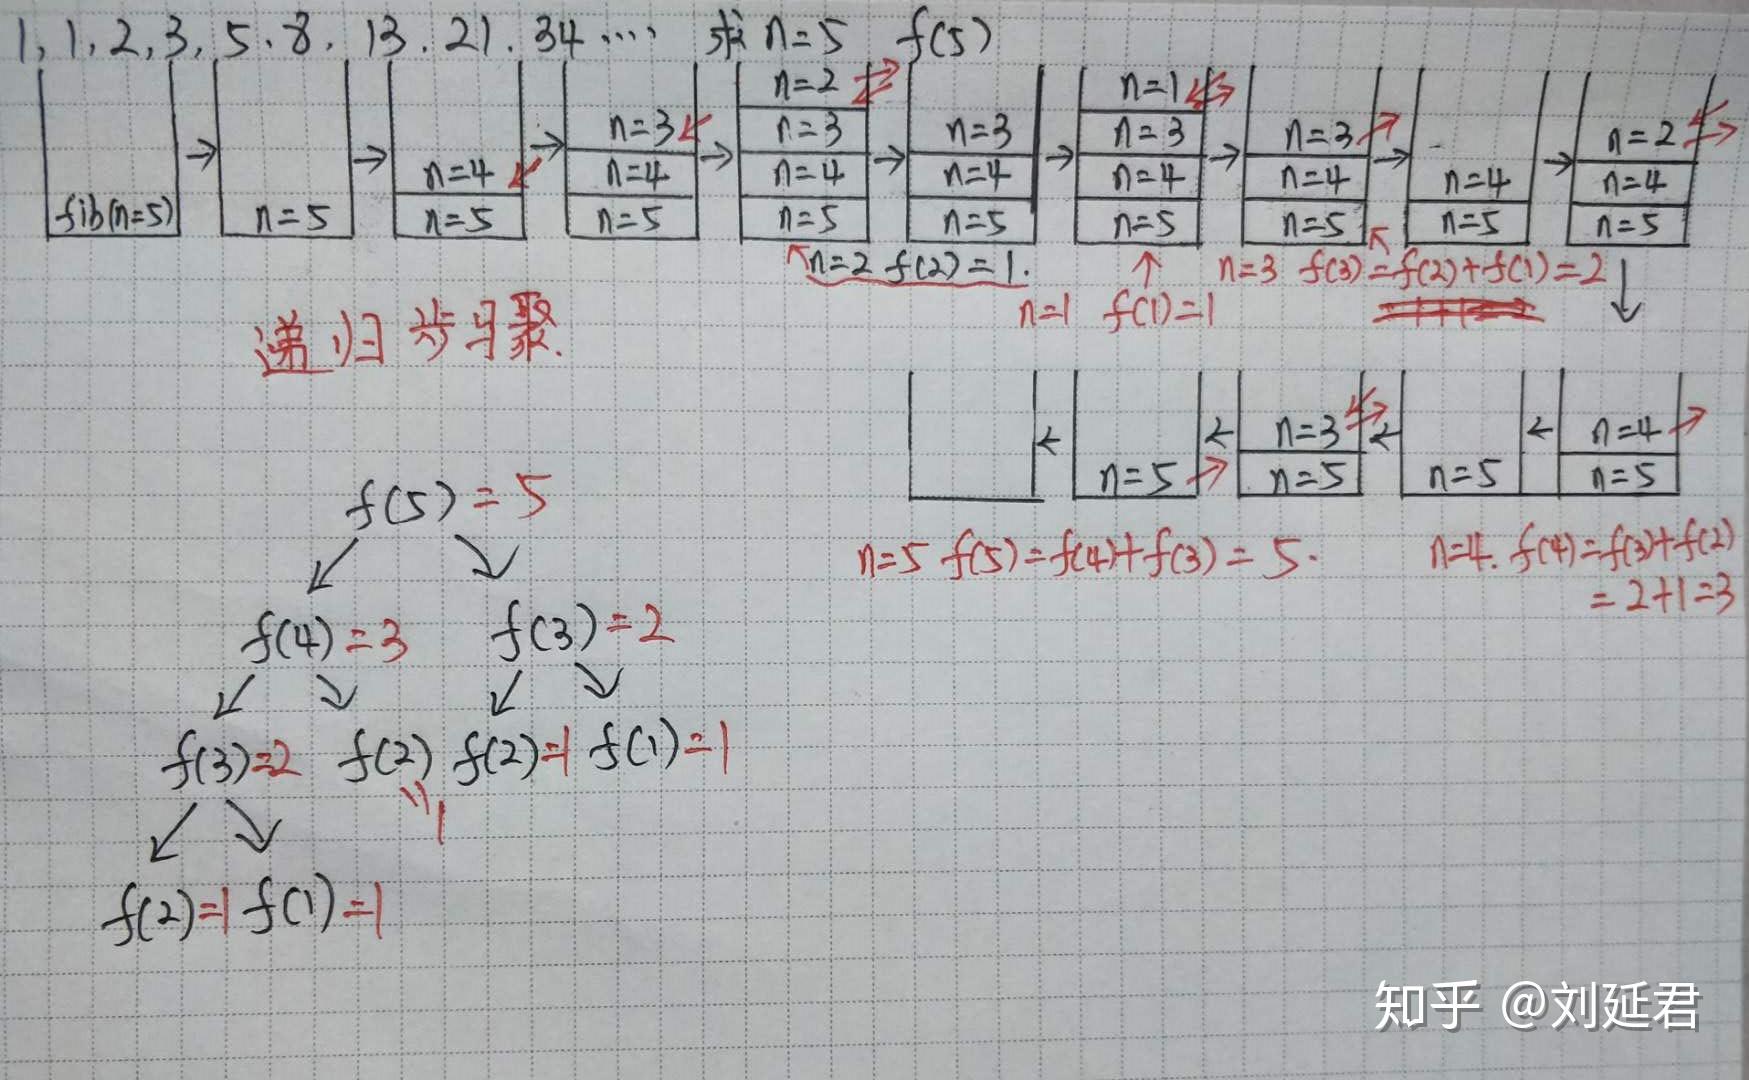 1, 1, 2, 3, 5, 8, 13, 21, 34 ···· 求 n=5 f(5)
n=2 n=1
n=3 n=3 n=3 n=3 n=3 n=2
n=4 n=4 n=4 n=4 n=4 n=4 n=4 n=4
fib(n=5) n=5 n=5 n=5 n=5 n=5 n=5 n=5 n=5 n=5
n=2 f(2)=1. n=3 f(3)=f(2)+f(1)=2
n=1 f(1)=1
递归步骤.
n=3 n=4
n=5 n=5 n=5 n=5
n=5 f(5)=f(4)+f(3)=5. n=4. f(4)=f(3)+f(2)
=2+1=3
f(5)=5
f(4)=3 f(3)=2
f(3)=2 f(2) f(2)=1 f(1)=1
=1
f(2)=1 f(1)=1
知乎 @刘延君